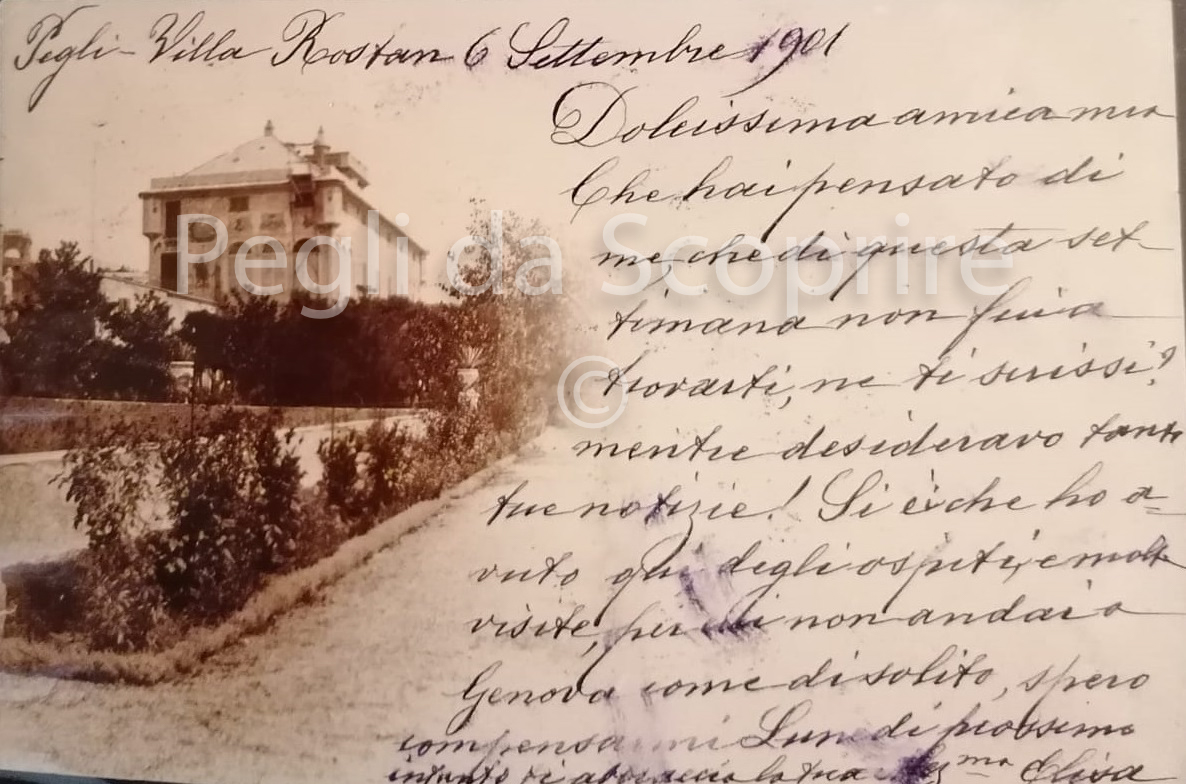 Pegli - Villa Rostan 6 Settembre 1901
Dolcissima amica mia
Che hai pensato di
me, che di questa set-
timana non fui a
trovarti, ne ti scrissi?
mentre desideravo tante
tue notizie! Si è che ho a=
vuto qui degli ospiti, e molte
visite, per cui non andai a
Genova come di solito, spero
compensarmi Lunedi prossimo
intanto ti abbraccio la tua Elisa
Pegli da Scoprire
©